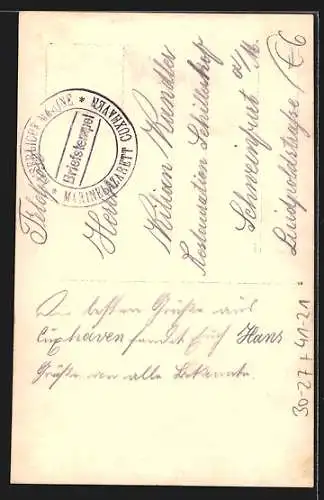 KAISERLICHE MARINE
* MARINELAZARETT CUXHAVEN *
Briefstempel
Feldpost
Herrn
Kilian Kundler
Restauration Schillerhof
Schweinfurt a/M.
Luitpoldstraße
E6
Die besten Grüße aus
Cuxhaven sendet Euch Hans
Grüße an alle Bekannte.
30-27+41-21